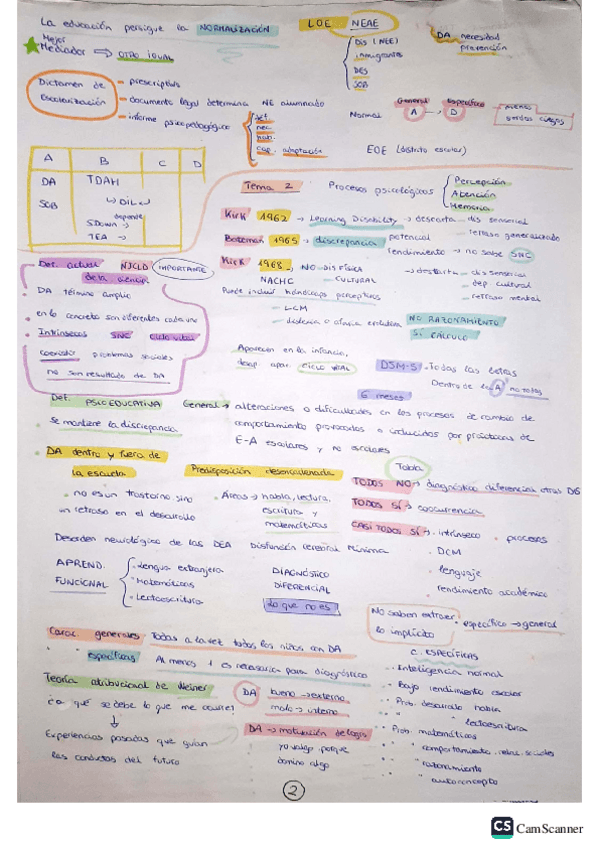 La educación persigue la NORMALIZACIÓN
LOE NEAE
Mejor
Mediador → OTRO IGUAL
DIS (NEE)
inmigrantes
DES
SOB
DA necesidad
prevención
Dictamen de
Escolarización
- prescriptivo
- documento legal determina NE alumnado
- informe psicopedagógico
def.
nec.
hab.
cap. adaptación
General Específico
Normal A → D
EOE (distrito escolar)
A B C D
DA TDAH
SOB DIL
depende
SDown →
TEA →
Tema 2
Procesos psicológicos
Percepción
Atención
Memoria
Kirk 1962 → Learning Disability → descarta dis sensorial
retraso generalizado
Bateman 1965 → discrepancia potencial
rendimiento → no sabe SNC
Kirk 1968 NO DIS FÍSICA → descarta dis sensorial
NACHC CULTURAL dep cultural
Puede incluir hándicaps perceptivos retraso mental
- LCM
- dislexia o afasia evolutiva
NO RAZONAMIENTO
SÍ CÁLCULO
Def. actual NJCLD IMPORTANTE
DA término amplio
en lo concreto son diferentes cada uno
Intrínsecos SNC ciclo vital
coexistir problemas sociales
no son resultado de DA
Aparecen en la infancia,
desp. apar. ciclo vital
DSM-5 Todas las letras
Dentro de la A no todos
6 meses
Def. PSICOEDUCATIVA
General → alteraciones o dificultades en los procesos de cambio de
comportamiento provocados o inducidos por prácticas de
E-A escolares y no escolares
Se mantiene la discrepancia
DA dentro y fuera de
la escuela
Predisposición desencadenada
Tabla
no es un trastorno sino
un retraso en el desarrollo
Áreas → habla, lectura,
escritura y
matemáticas
TODOS NO → diagnóstico diferencial otras DG
TODOS SÍ → coocurrencia
CASI TODOS SÍ → intrínseco procesos
DCM
lenguaje
rendimiento académico
Desorden neurológico de las DEA Disfunción Cerebral Mínima
APREND.
FUNCIONAL
Lengua extranjera
Matemáticas
Lectoescritura
DIAGNÓSTICO
DIFERENCIAL
Lo que no es
No saben extraer
lo implícito
específico → general
Carac. generales Todas a la vez todos los niños con DA
específicas Al menos 1 es necesaria para diagnóstico
C. ESPECÍFICAS
Inteligencia normal
Bajo rendimiento escolar
Prob. desarrollo habla
" " lectoescritura
Prob. matemáticas
" comportamiento, relac. sociales
" razonamiento
" autoconcepto
Teoría atribucional de Weiner
¿a qué se debe lo que me ocurre?
Experiencias pasadas que guían
las conductas del futuro
DA bueno → externo
malo → interno
DA → motivación de logro
yo valgo porque
domino algo
2
CS CamScanner